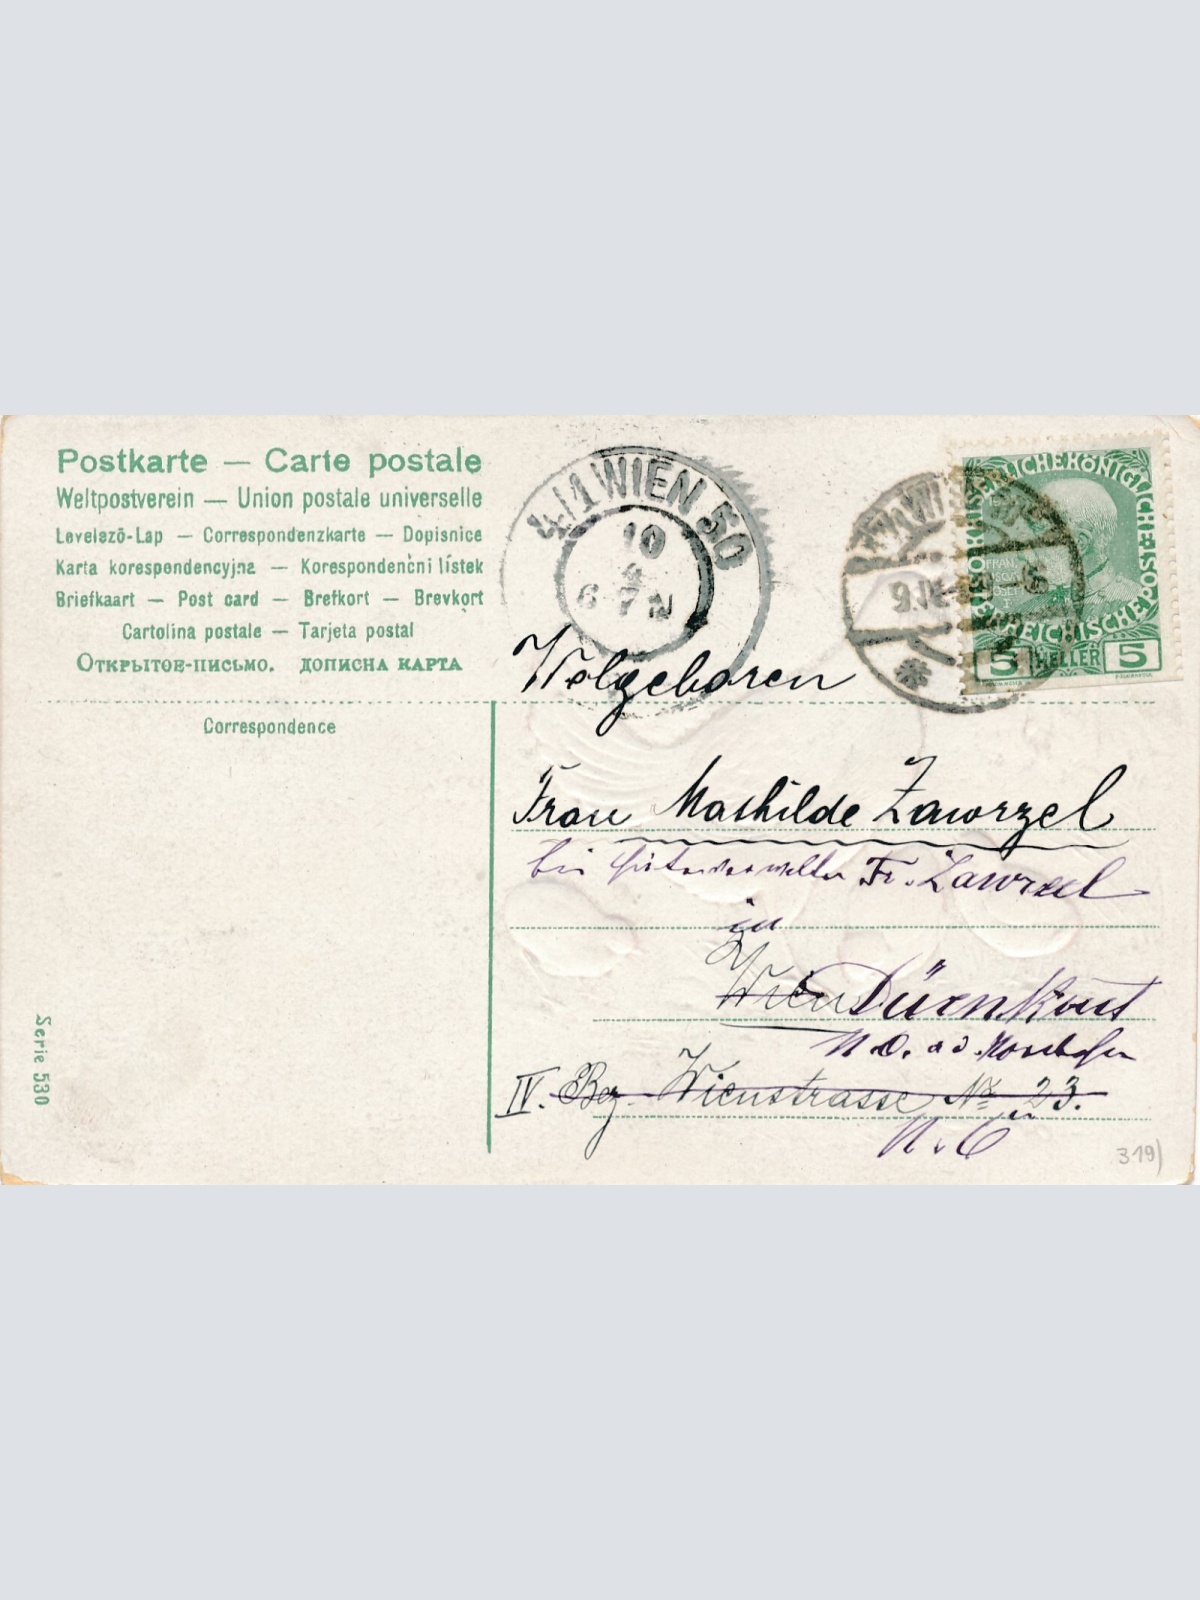 Postkarte — Carte postale
Weltpostverein — Union postale universelle
Levelezö-Lap — Correspondenzkarte — Dopisnice
Karta korespondencyjna — Korespondenčni lístek
Briefkaart — Post card — Brefkort — Brevkort
Cartolina postale — Tarjeta postal
Открытое-письмо. дописна карта
Correspondence
Serie 530
4/1 WIEN 50
10
4
6 7 N
KAISERLICHE KÖNIGLICHE
ÖSTERREICHISCHE
5 HELLER 5
Wolgeboren
Frau Mathilde Zawrzel
bei Fr. Zawrzel
in
Wien Dürnkrut
N.Ö. a d.
IV. Bez Wienstrasse № 23.
N.Ö
319)